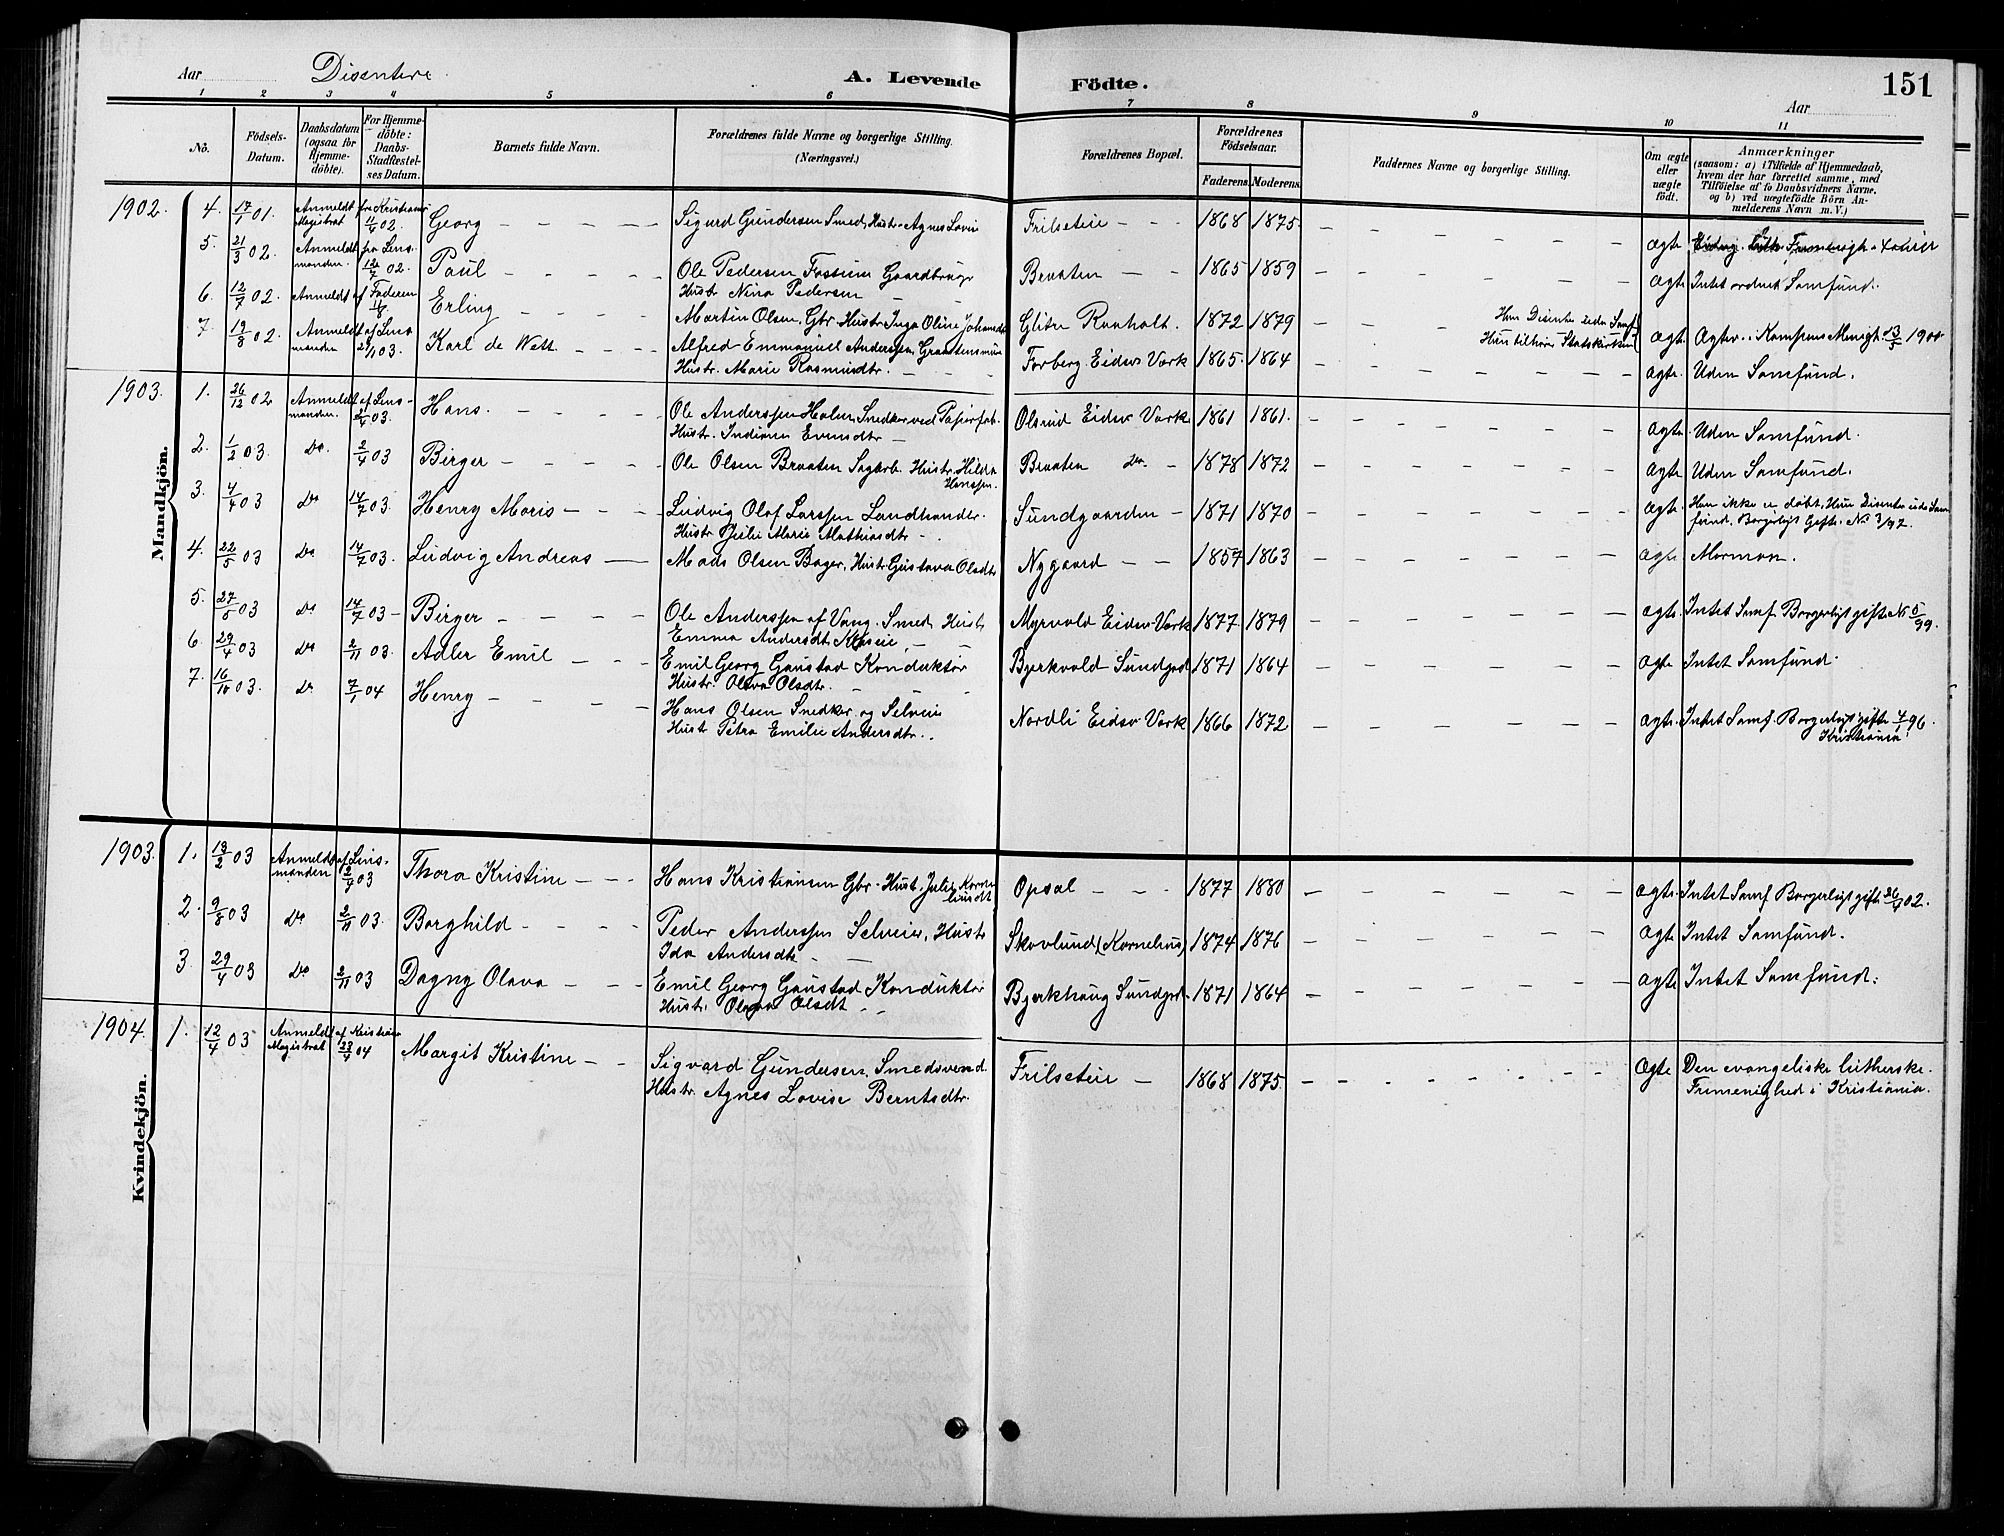 Aar
Disentere
A. Levende Födte.
Aar
151
1 2 3 4 5 6 7 8 9 10 11
No.
Födsels-Datum.
Daabsdatum (ogsaa for Hjemme-döbte).
For Hjemme-döbte: Daabs-Stadfæstel-ses Datum.
Barnets fulde Navn.
Forældrenes fulde Navne og borgerlige Stilling. (Næringsvei.)
Forældrenes Bopæl.
Forældrenes Födselsaar.
Faderens. Moderens.
Faddernes Navne og borgerlige Stilling.
Om ægte eller uægte födt.
Anmærkninger
(saasom: a) i Tilfælde af Hjemmedaab, hvem der har forrettet samme, med Tilföielse af to Daabsvidners Navne, og b) ved uægtefödte Börn An-melderens Navn m. V.)
Mandkjön.
1902. 4. 17/1 01. Anmeldt fra Kristiania Magistrat 1/4 02. Georg – – – – Sigurd Gundersen Smed, Hustr. Agnes Lovise Frilseteie – – 1868 1875. – – – ægte
5. 21/3 02. Anmeldt fra Lens-manden. 12/7 02. Paul – – – – Ole Pedersen Fossum Gaardbruger Hustr Nina Pedersen Braaten – – 1865 1859 – – – ægte Intet ordnet Samfund.
6. 12/7 02. Anmeldt af Faderen 11/8 Erling – – – Martin Olsen, Gbr. Hustr. Inga Oline Johansdt Glitre Raaholt. 1872 1879 – – – Han Disenter uden Samf. Hun tilhører Statskirken ægte Kampens Menigh. 13/5 1900
7. 19/8 02. Anmeldt af Lens-manden 2/11 03. Karl de Wett – – – Alfred Emmanuel Anderssen, Hustr. Marie Rasmusdtr. Forberg Eidsv Værk 1865. 1864 – – – ægte. Uden Samfund.
1903. 1. 26/12 02 Anmeldt af Lens-manden. 2/4 03. Hans. – – – Ole Anderssen Holm Snedker ved Papirfab. Hustr. Indiane Evensdtr – Olsrud Eidsv Værk 1861 1861. – – – ægte. Uden Samfund.
2. 1/2 03. Do. 2/4 03 Birger – – – – Ole Olsen Braaten Sagarb. Hustr. Hilda Hanssen. Braaten Do. – 1878 1872 – – – ægte. Uden Samfund.
3. 4/4 03 Do 14/7 03. Henry Moris – – – Ludvig Olaf Larssen Landhandler. Hustr. Marie Mathiasdtr – Sundgaarden – 1871 1870 – – – ægte. Han ikke er døbt, Hun Disenter uden Sam-fund. Borgerligt Gifte. No 3/97.
4. 22/5 03 Do 14/7 03. Ludvig Andreas – Mads Olsen Bager, Hustr. Gustava Olsdtr Nygaard – – 1857 1863 – – – ægte Mormon.
5. 27/5 03 Do 14/7 03 – Birger – – – Ole Anderssen af Vang. Smed, Hustr Emma Andersdt. Myrvold Eidsv Værk 1877. 1879 – – – ægte. Intet Samf. Borgerligt gifte No 5/99.
6. 29/4 03 Do 2/11 03. Adler Emil – – – Emil Georg Gaustad Konduktør Hustr. Olava Olsdtr. – Bjerkvold Sundgrd 1871 1864 – – – ægte Intet Samfund.
7. 16/10 03. Do 7/1 04 Henry – – – – Hans Olsen Snedker og Selveier Hustr. Petra Emilie Andersdtr.. Nordli Eidsv Værk 1866 1872. – – – ægte. Intet Samf. Borgerligt gifte 4/1 96. Kristiania
Kvindekjön.
1903. 1. 13/2 03 Anmeldt af Lens-manden 2/4 03 Thora Kristine – – – Hans Kristiansen Gbr. Hust. Julie Opsal – – – 1877 1880 – – – ægte. Intet Samf. Borgerligt gifte 26/4 02.
2. 9/8 03 Do 2/11 03. Borghild – – – – Peder Anderssen Selveier, Hustr Ida Andersdtr – Skovlund (Kornelius) 1874 1876 – – – ægte Intet Samfund.
3. 29/4 03 Do 2/11 03 Dagny Olava – – – Emil Georg Gaustad Konduktør Hustr. Olava Olsdt – – Bjerkhaug Sundgrd. 1871 1864 – – – ægte Intet Samfund.
1904. 1. 12/4 03 Anmeldt af Kristiania Magistrat 23/4 04 Margit Kristine – – Sigvard Gundersen, Smedsvend. Hustr. Agnes Lovise Berntsdtr. Frilseteie – 1868 1875. – – – ægte Den evangeliske lutherske. Frimenighed i Kristiania.